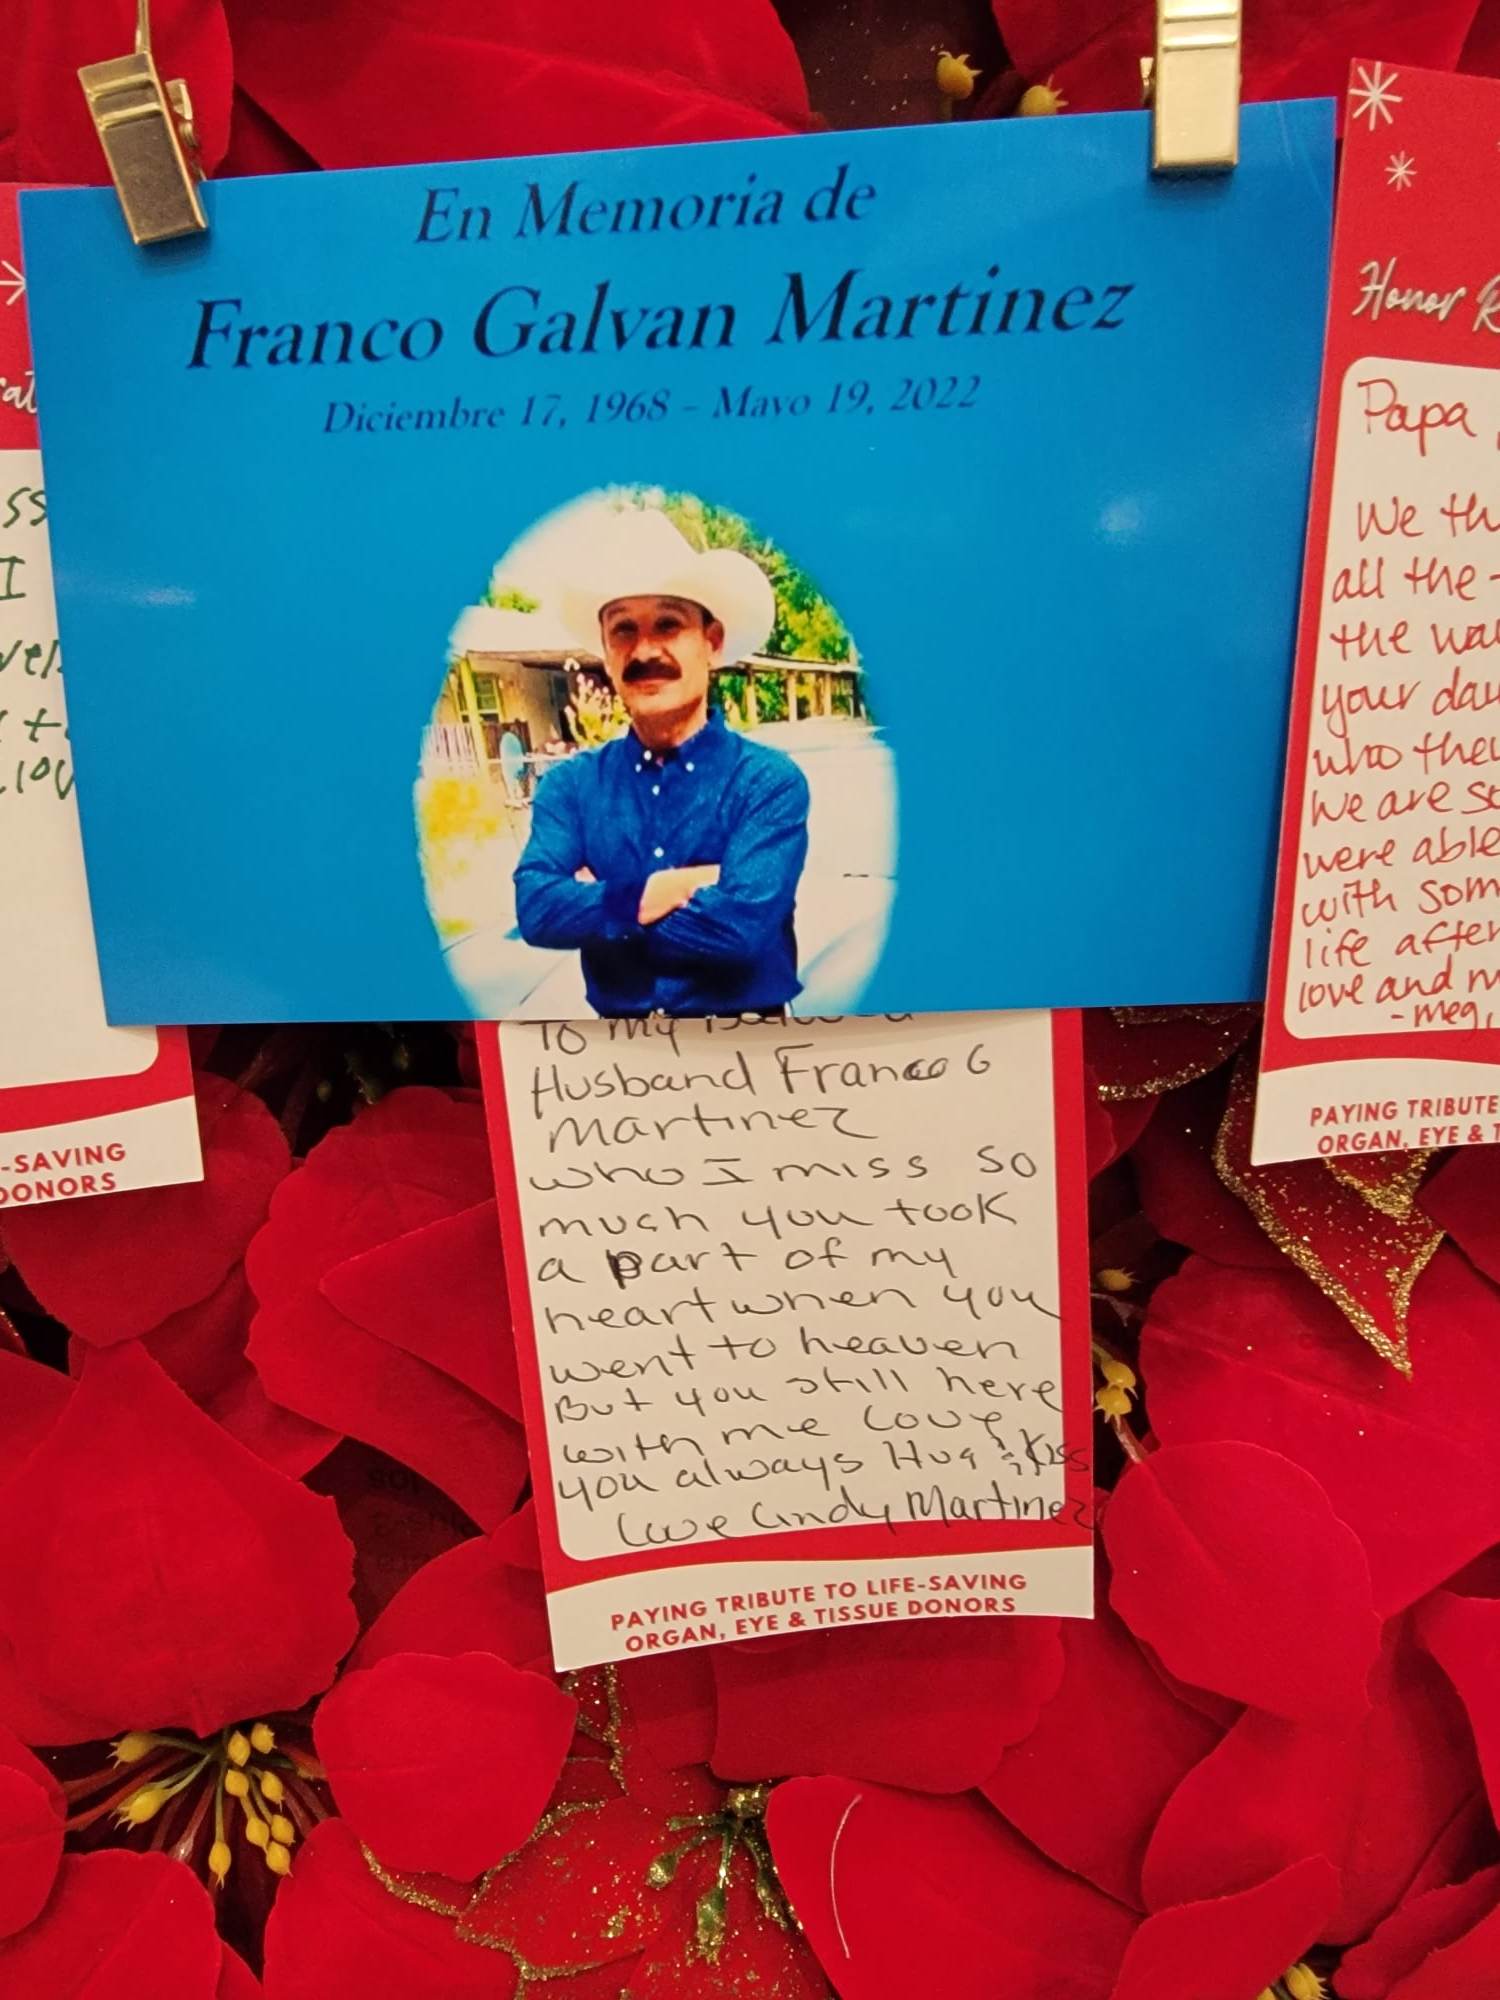 En Memoria de
Franco Galvan Martinez
Diciembre 17, 1968 - Mayo 19, 2022
To my
Husband Franco G
Martinez
who I miss so
much you took
a part of my
heart when you
went to heaven
But you still here
with me Love
you always Hug & Kiss
Love Cindy Martinez
PAYING TRIBUTE TO LIFE-SAVING
ORGAN, EYE & TISSUE DONORS
I
-SAVING
DONORS
Honor
Papa
We th
all the
the wa
your dau
who they
We are so
were able
with som
life after
love and m
-meg,
PAYING TRIBUTE
ORGAN, EYE & T